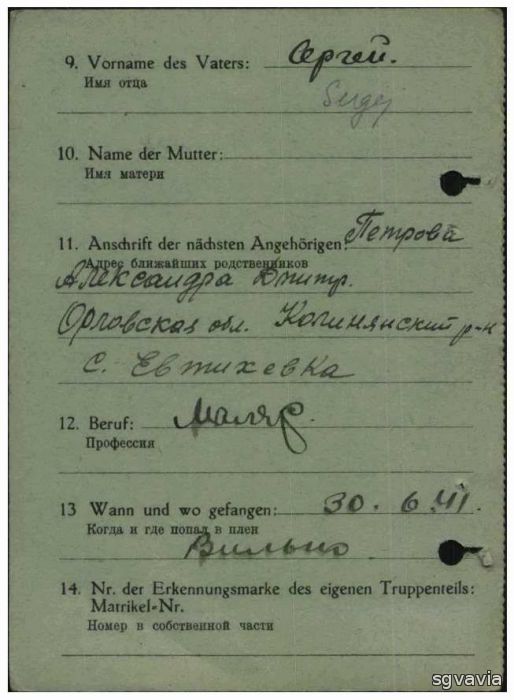 9. Vorname des Vaters: Сергей.
Имя отца
Sergej
10. Name der Mutter:
Имя матери
11. Anschrift der nächsten Angehörigen: Петрова
Адрес ближайших родственников
Александра Дмитр.
Орловская обл. Колпнянский р-н
с. Евтихевка
12. Beruf: Маляр.
Профессия
13 Wann und wo gefangen: 30. 6. 41.
Когда и где попал в плен
Вильно
14. Nr. der Erkennungsmarke des eigenen Truppenteils:
Matrikel-Nr.
Номер в собственной части
sgvavia